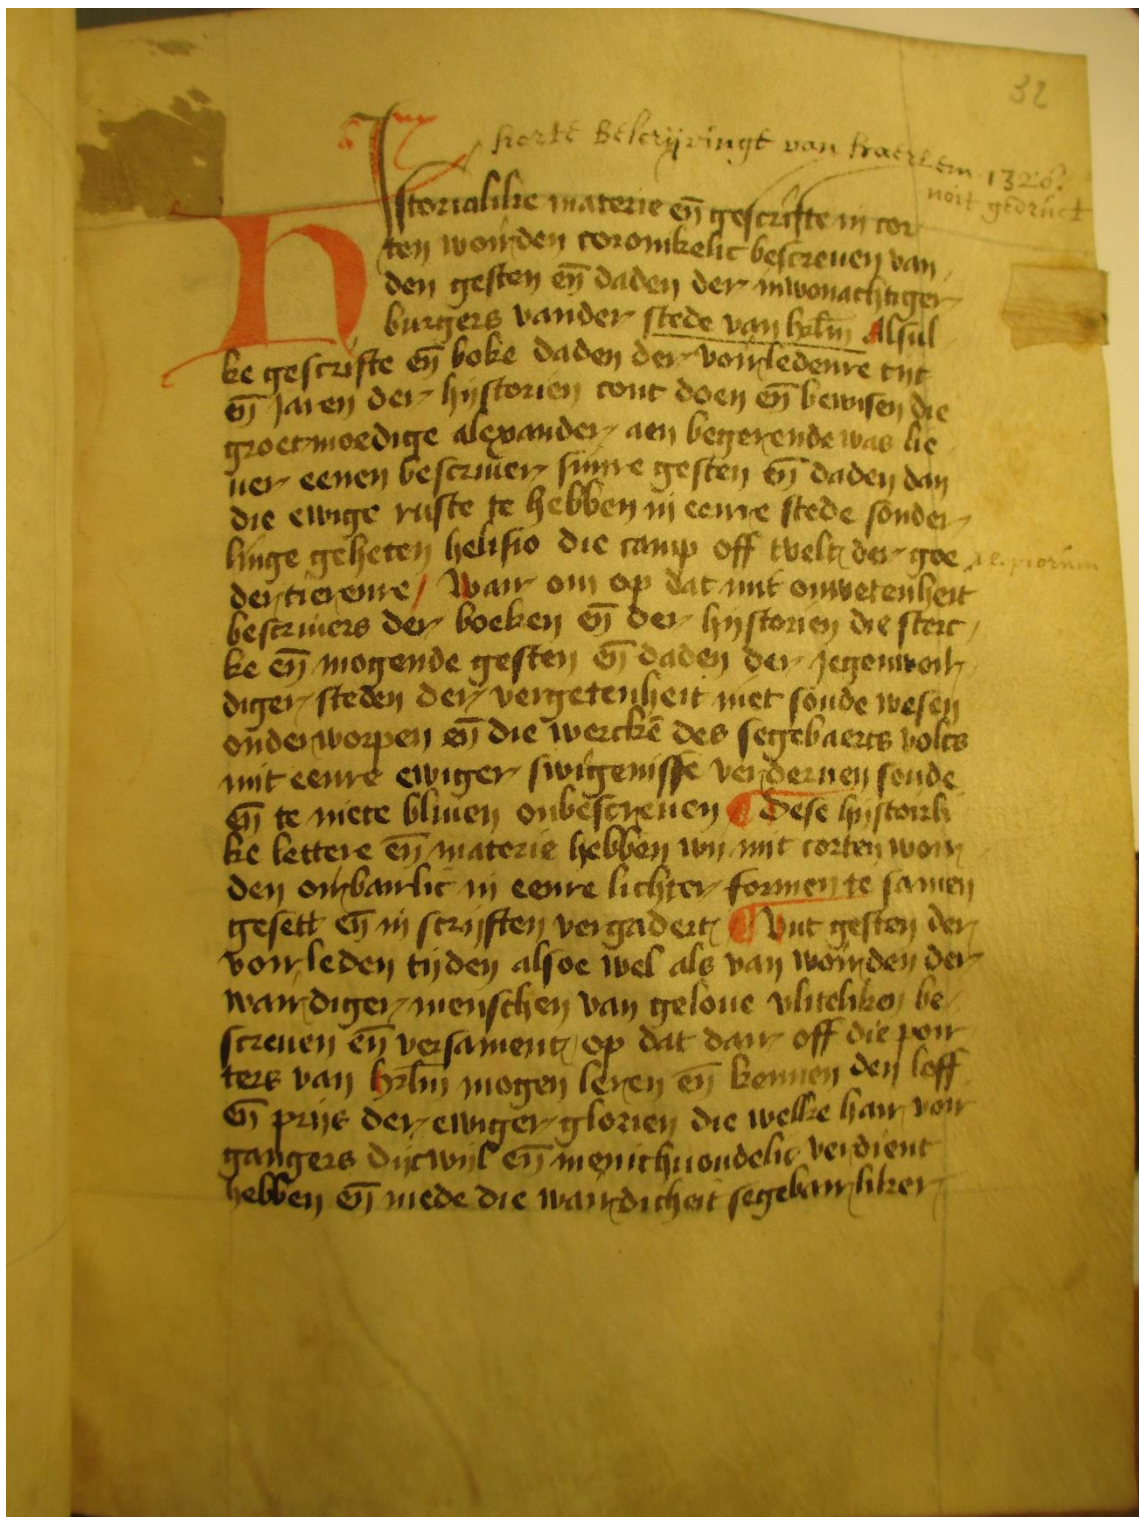 32
korte Bescrijvinge van haerlem 1328.
noit gedruct
HIstorialike materie en̄ gescrifte in cor
ten woirden coronikelic bescreuen van
den gesten en̄ daden der inwonachtiger
burgers vander stede van hrl̄m Alsul
ke gescrifte en̄ boke daden der voirledenre tijt
en̄ Jaren der hijstorien cont doen en̄ bewisen die
groetmoedige alexander aen begerende was lie
uer eenen bescriuer sinre gesten en̄ daden dan
die ewige ruste te hebben in eenre stede sonder
linge geheten helisio die camp off velt der goe
dertierenre / Wair om op dat mit onwetenheit
bescriuers der boeken en̄ der hijstorien die sterc
ke en̄ mogende gesten en̄ daden der jegenwoir
diger steden der vergetenheit niet soude wesen
onderworpen en̄ die werckē des segebaerts volcs
mit eenre ewiger swigenisse verderuen soude
en̄ te niete bliuen onbescreuen ¶ Dese hijstoirli
ke lettere en̄ materie hebben wij mit corten woir
den oirbairlic in eenre lichter formen te samen
gesett en̄ in scrijften vergadert ¶ Vut gesten der
voirleden tijden alsoe wel als van woirden der
wairdiger menschen van geloue vliteliken be
screuen en̄ versament op dat dair off die poir
ters van hrl̄m mogen leren en̄ kennen den loff
en̄ prijs der ewiger glorien die welke hair voir
gangers dijcwijl en̄ menichuoudelic verdient
hebben en̄ mede die wairdicheit segebairliker